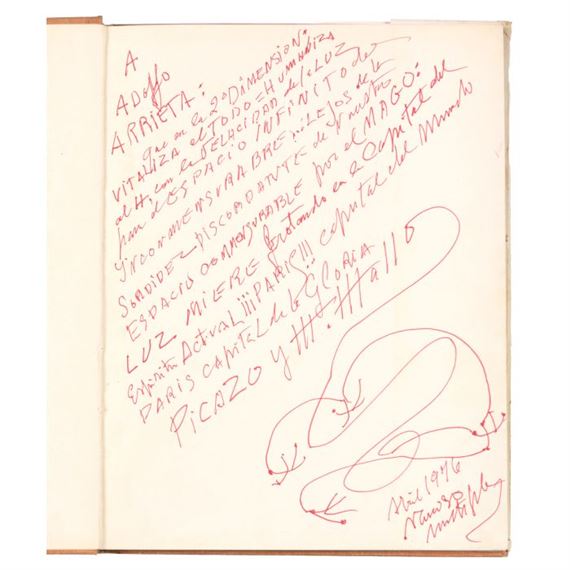 A
ADolfo
ARRIETA:
que en la 2ª DAMENSION:
VITALIZA el TODO = HUMANIZA
al H, con la VELACIDAD de la LUZ
para el ESPACIO INFINITO de
YNCONMENSURABRE LEJOS de la
SORDIDEZ DISCORDANTE de nuestro
ESPACIO CONMENSURABLE por el MAGO:
LUZ MIERE flotando en la Capital del
Espíritu ACTUAL ¡¡¡PARIS!!! capital del Mundo
PARIS CAPITAL de la GLORIA
PiCAZO y
Abril 1976